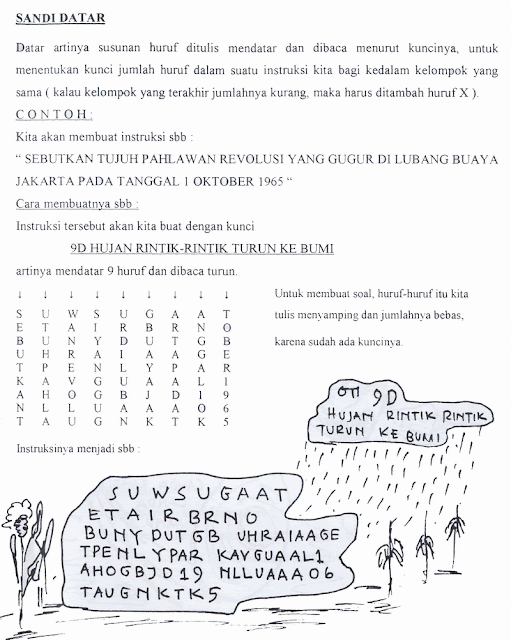 SANDI DATAR
Datar artinya susunan huruf ditulis mendatar dan dibaca menurut kuncinya, untuk
menentukan kunci jumlah huruf dalam suatu instruksi kita bagi kedalam kelompok yang
sama ( kalau kelompok yang terakhir jumlahnya kurang, maka harus ditambah huruf X ).
C O N T O H :
Kita akan membuat instruksi sbb :
“ SEBUTKAN TUJUH PAHLAWAN REVOLUSI YANG GUGUR DI LUBANG BUAYA
JAKARTA PADA TANGGAL 1 OKTOBER 1965 “
Cara membuatnya sbb :
Instruksi tersebut akan kita buat dengan kunci
9D HUJAN RINTIK-RINTIK TURUN KE BUMI
artinya mendatar 9 huruf dan dibaca turun.
↓ ↓ ↓ ↓ ↓ ↓ ↓ ↓ ↓
S U W S U G A A T
E T A I R B R N O
B U N Y D U T G B
U H R A I A A G E
T P E N L Y P A R
K A V G U A A L 1
A H O G B J D 1 9
N L L U A A A O 6
T A U G N K T K 5
Untuk membuat soal, huruf-huruf itu kita
tulis menyamping dan jumlahnya bebas,
karena sudah ada kuncinya.
Instruksinya menjadi sbb :
9D
HUJAN RINTIK RINTIK
TURUN KE BUMI
SUWSUGAAT
ETAIRBRNO
BUNYDUTGB UHRAIAAGE
TPENLYPAR KAVGUAAL1
AHOGBJD19 NLLUAAAO6
TAUGNKTK5